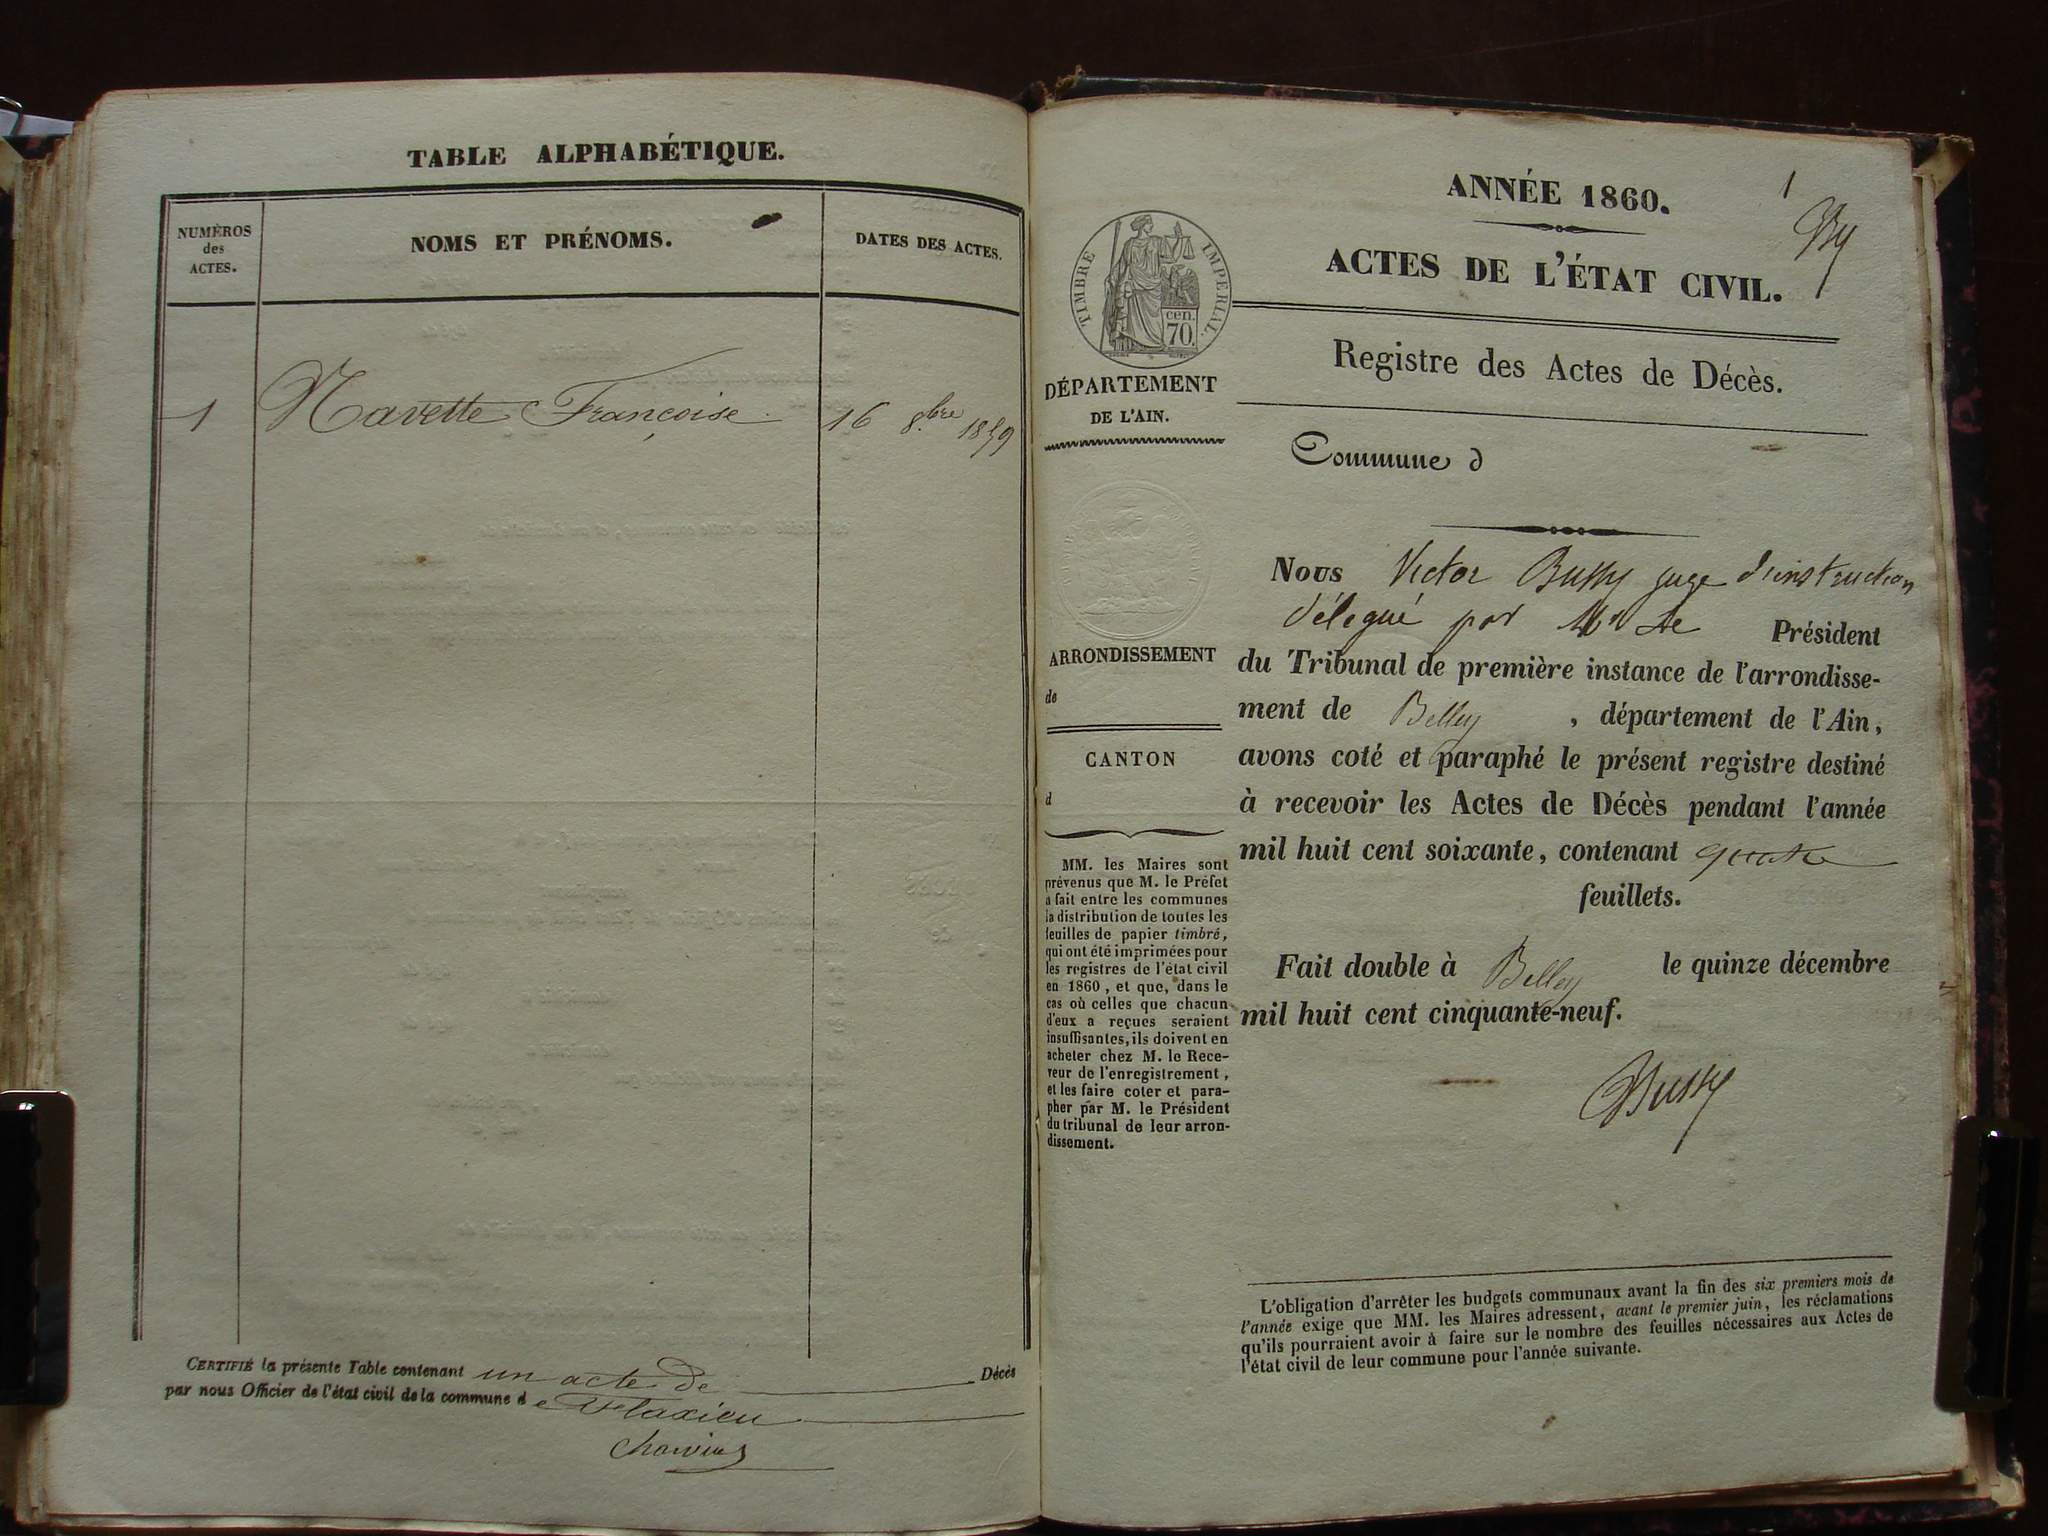 TABLE ALPHABÉTIQUE.
NUMÉROS
des
ACTES.
NOMS ET PRÉNOMS.
DATES DES ACTES.
1 Navette Françoise. 16 8.bre 1859
CERTIFIÉ la présente Table contenant un acte de Décès
par nous Officier de l'état civil de la commune de Flaxieu
1
By
ANNÉE 1860.
ACTES DE L'ÉTAT CIVIL.
TIMBRE IMPERIAL.
cen.
70.
Registre des Actes de Décès.
DÉPARTEMENT
DE L'AIN.
Commune d
ARRONDISSEMENT
de
CANTON
d
MM. les Maires sont
prévenus que M. le Préfet
a fait entre les communes
la distribution de toutes les
feuilles de papier timbré,
qui ont été imprimées pour
les registres de l'état civil
en 1860, et que, dans le
cas où celles que chacun
d'eux a reçues seraient
insuffisantes, ils doivent en
acheter chez M. le Rece-
veur de l'enregistrement,
et les faire coter et para-
pher par M. le Président
du tribunal de leur arron-
dissement.
Nous Victor Bussy juge d'instruction
délégué par Mr le Président
du Tribunal de première instance de l'arrondisse-
ment de Belley, département de l'Ain,
avons coté et paraphé le présent registre destiné
à recevoir les Actes de Décès pendant l'année
mil huit cent soixante, contenant quatre
feuillets.
Fait double à Belley le quinze décembre
mil huit cent cinquante-neuf.
Bussy
L'obligation d'arrêter les budgets communaux avant la fin des six premiers mois de
l'année exige que MM. les Maires adressent, avant le premier juin, les réclamations
qu'ils pourraient avoir à faire sur le nombre des feuilles nécessaires aux Actes de
l'état civil de leur commune pour l'année suivante.